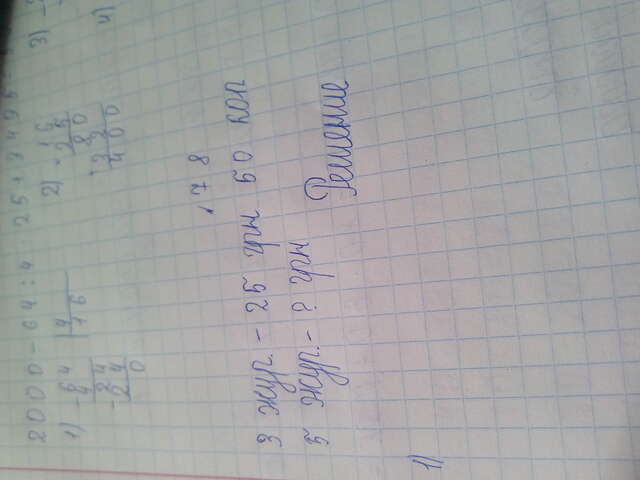 2000-64:4·25+3496=
1) 64 4 2) 16 3)
4 16 25
24 80
24 32
0 400
4)
178
3 жур. - 25 грн 50 коп
5 жур. - ? грн
Решение
1)